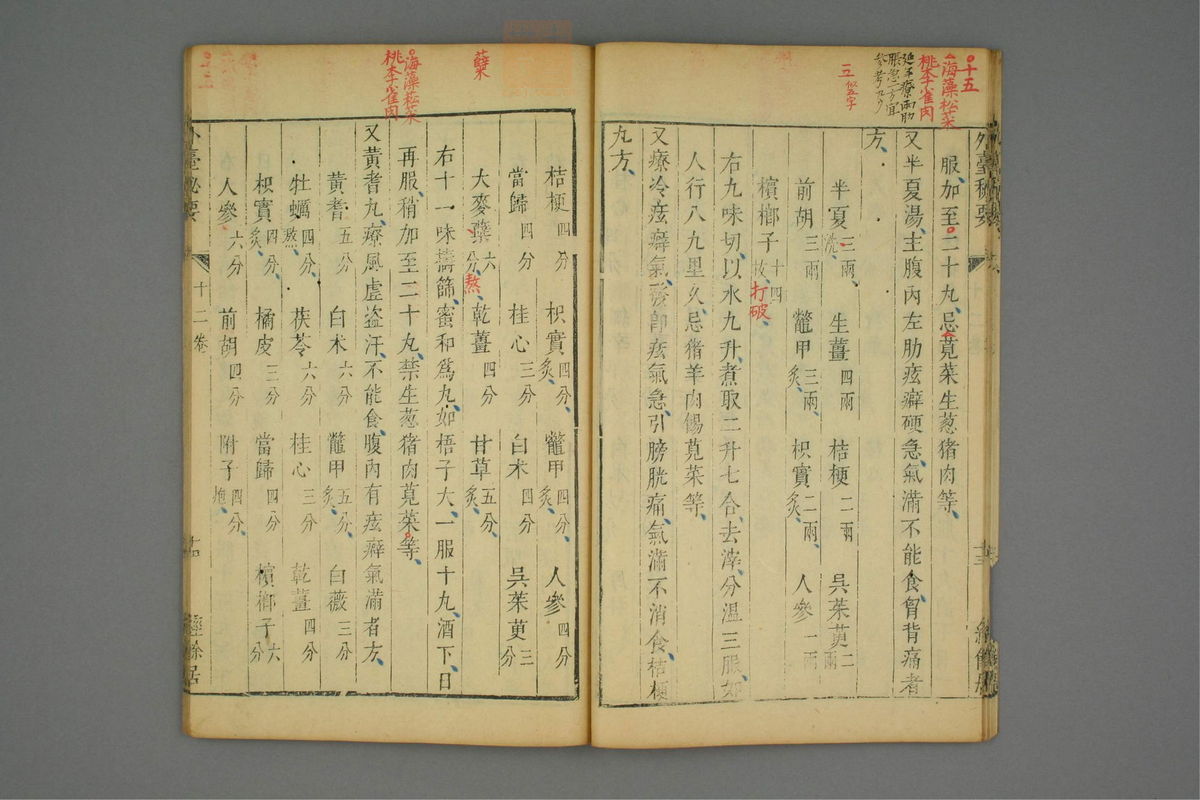 十五
海藻松菜
桃李雀肉
延年療兩肋
脹急一方宜
參考
三 似五字
外臺秘要
服加至二十丸忌莧菜生葱猪肉等
又半夏湯主腹內左肋痃癖硬急氣滿不能食胷背痛者
方
半夏三兩洗 生薑四兩 桔梗二兩 吳茱萸二兩
前胡三兩 鼈甲三兩炙 枳實二兩炙 人參一兩
檳榔子十四枚 打破
右九味切以水九升煮取二升七合去滓分溫三服如
人行八九里久忌猪羊肉餳莧菜等
又療冷痃癖氣發卽痃氣急引膀胱痛氣滿不消食桔梗
丸方
蘗
海藻菘菜
桃李雀肉
桔梗四分 枳實四分炙 鼈甲四分炙 人參四分
當歸四分 桂心三分 白朮四分 吳茱萸三分
大麥蘗六分 熬 乾薑四分 甘草五分炙
右十一味擣篩蜜和爲丸如梧子大一服十丸酒下日
再服稍加至二十丸禁生葱猪肉莧菜等
又黃耆丸療風虛盗汗不能食腹內有痃癖氣滿者方
黃耆五分 白朮六分 鼈甲五分炙 白薇三分
牡蠣四分熬 茯苓六分 桂心三分 乾薑四分
枳實四分炙 橘皮三分 當歸四分 檳榔子六分
人參六分 前胡四分 附子四分炮
外臺秘要 十二卷 經餘居